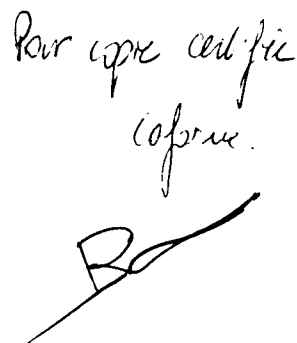 Pour copie certifiée
conforme.